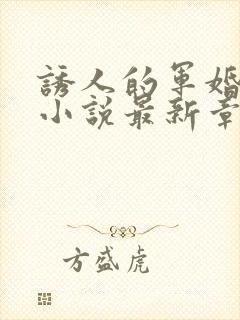 誘人的軍婚
小說最新章
方盛虎